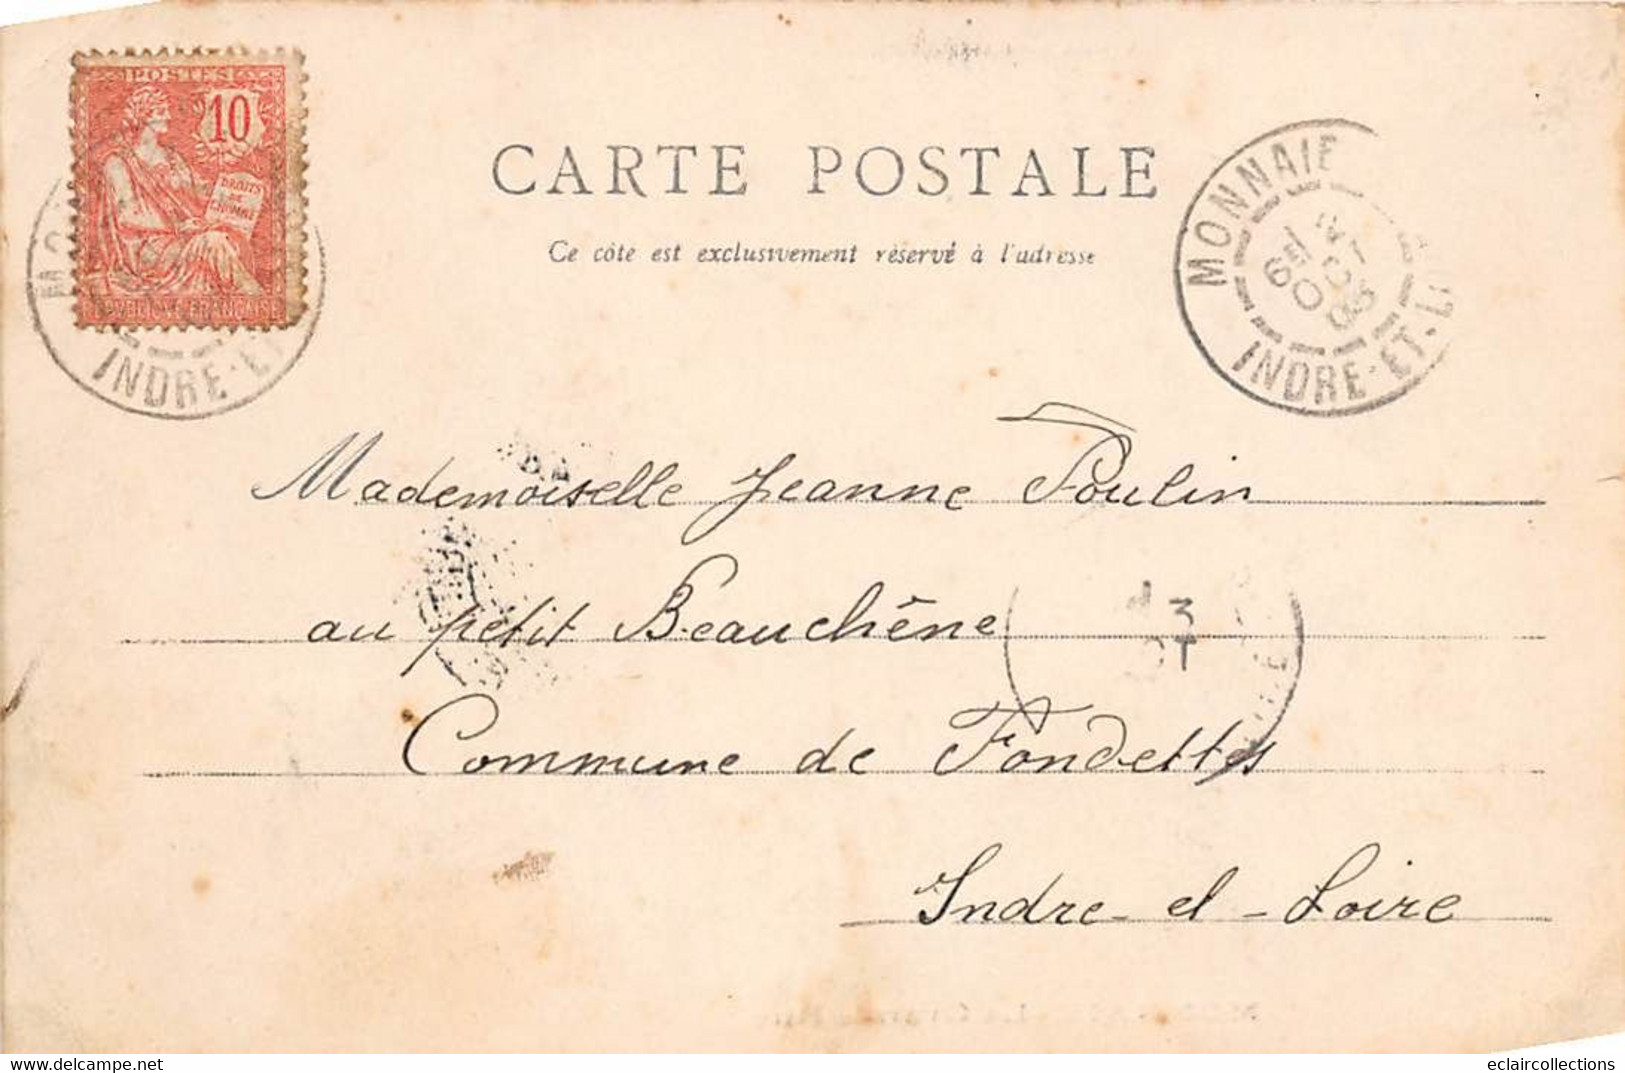 POSTES
10
DROITS
DE
L'HOMME
REPUBLIQUE FRANCAISE
INDRE-ET
CARTE POSTALE
Ce côte est exclusivement réservé à l'adresse
MONNAIE
INDRE-ET-L
Mademoiselle Jeanne Poulin
au petit Beauchêne
3
Commune de Fondettes
Indre-et-Loire
eclaircollections